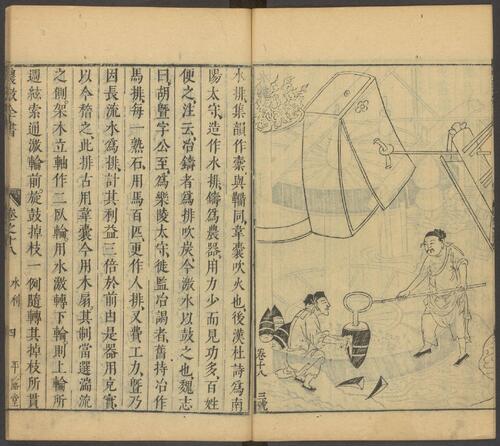 卷十八
水排集韻作橐與韛同韋囊吹火也後漢杜詩爲南
陽太守造作水排鑄爲農器用力少而見功多百姓
便之注云冶鑄者爲排吹炭今激水以鼓之也魏志
曰胡暨字公至爲樂陵太守徙監冶謁者舊持冶作
馬排每一熟石用馬百匹更作人排又費工力暨乃
因長流水爲排計其利益三倍於前由是器用充實
以今稽之此排古用韋囊今用木扇其制當選湍流
之側架木立軸作二臥輪用水激轉下輪則上輪所
週絃索通激輪前旋鼓掉枝一例隨轉其掉枝所貫
農政全書 卷之十八 水利 四 平露堂